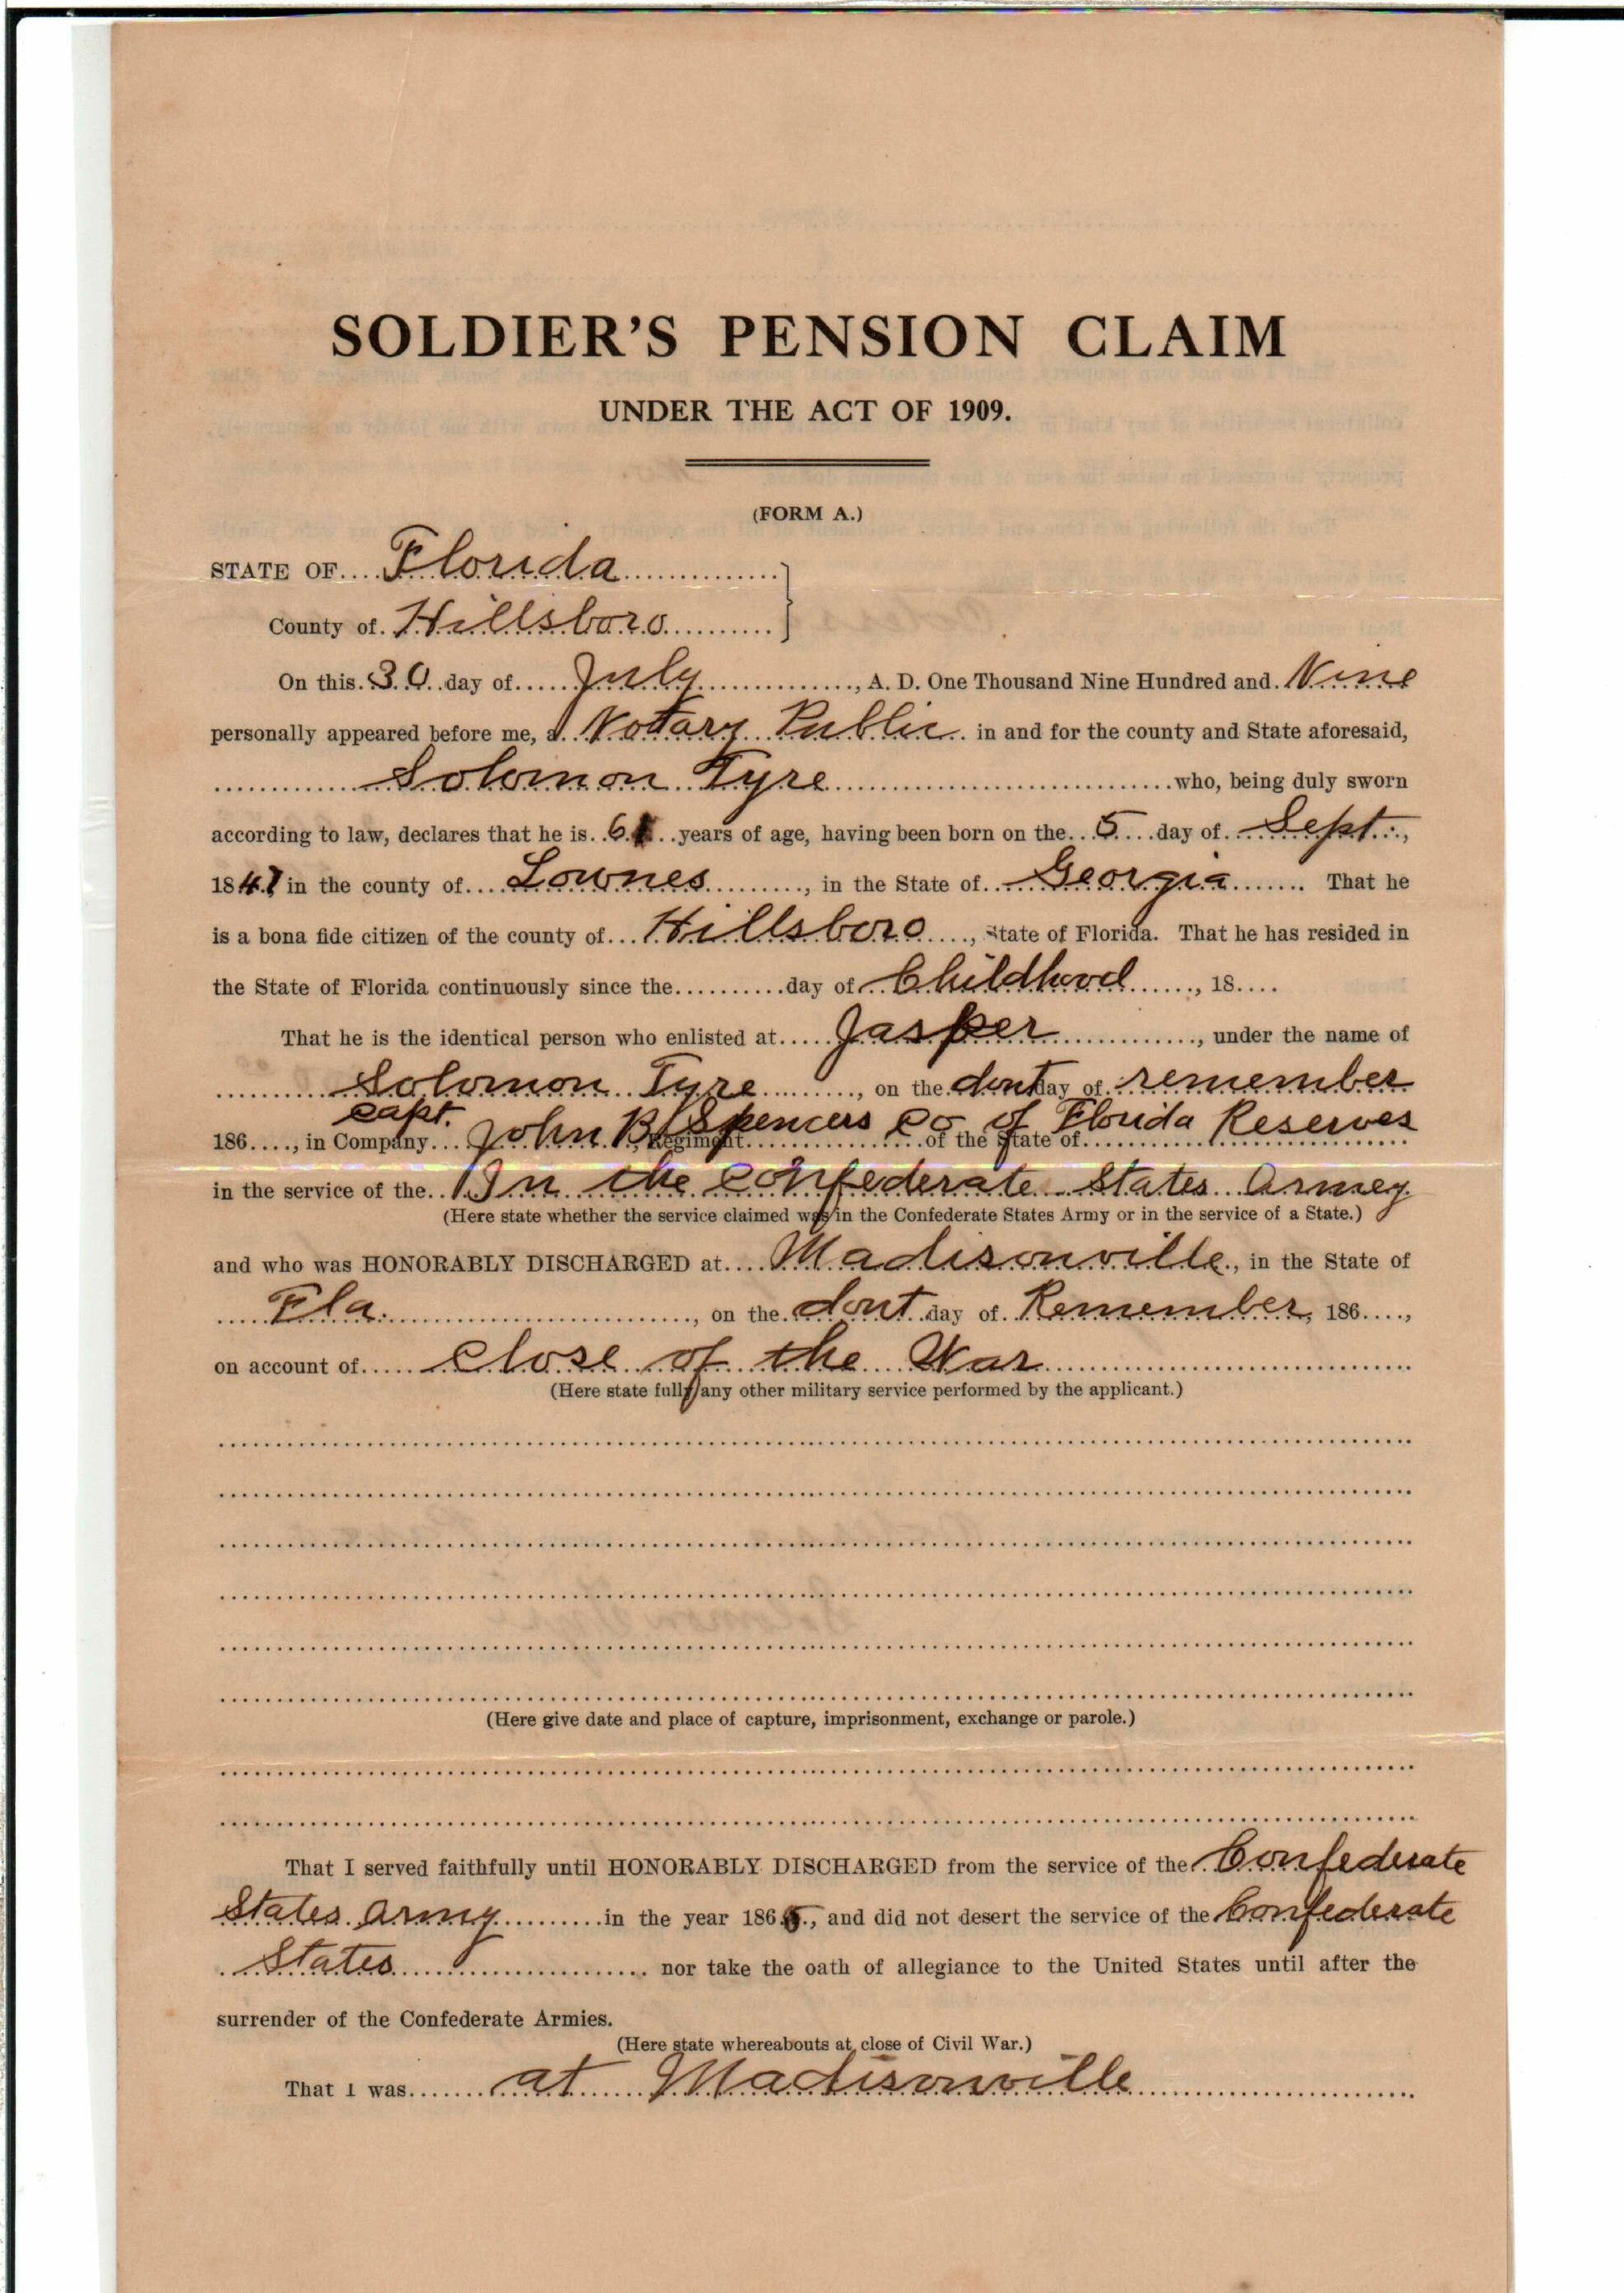 SOLDIER'S PENSION CLAIM
UNDER THE ACT OF 1909.
(FORM A.)
STATE OF Florida
County of Hillsboro
On this 30 day of July, A. D. One Thousand Nine Hundred and Nine
personally appeared before me, a Notary Public in and for the county and State aforesaid,
Solomon Tyre who, being duly sworn
according to law, declares that he is 61 years of age, having been born on the 5 day of Sept.,
1847 in the county of Lownes, in the State of Georgia. That he
is a bona fide citizen of the county of Hillsboro, State of Florida. That he has resided in
the State of Florida continuously since the day of Childhood, 18
That he is the identical person who enlisted at Jasper, under the name of
Solomon Tyre, on the dont day of remember
186, in Company Capt. John B Spencers Co of Florida Reserves Regiment of the State of
in the service of the In the Confederate States Armey
(Here state whether the service claimed was in the Confederate States Army or in the service of a State.)
and who was HONORABLY DISCHARGED at Madisonville, in the State of
Fla., on the dont day of Remember, 186,
on account of Close of the War
(Here state fully any other military service performed by the applicant.)
(Here give date and place of capture, imprisonment, exchange or parole.)
That I served faithfully until HONORABLY DISCHARGED from the service of the Confederate
States Army in the year 1865, and did not desert the service of the Confederate
States nor take the oath of allegiance to the United States until after the
surrender of the Confederate Armies.
(Here state whereabouts at close of Civil War.)
That I was at Madisonville